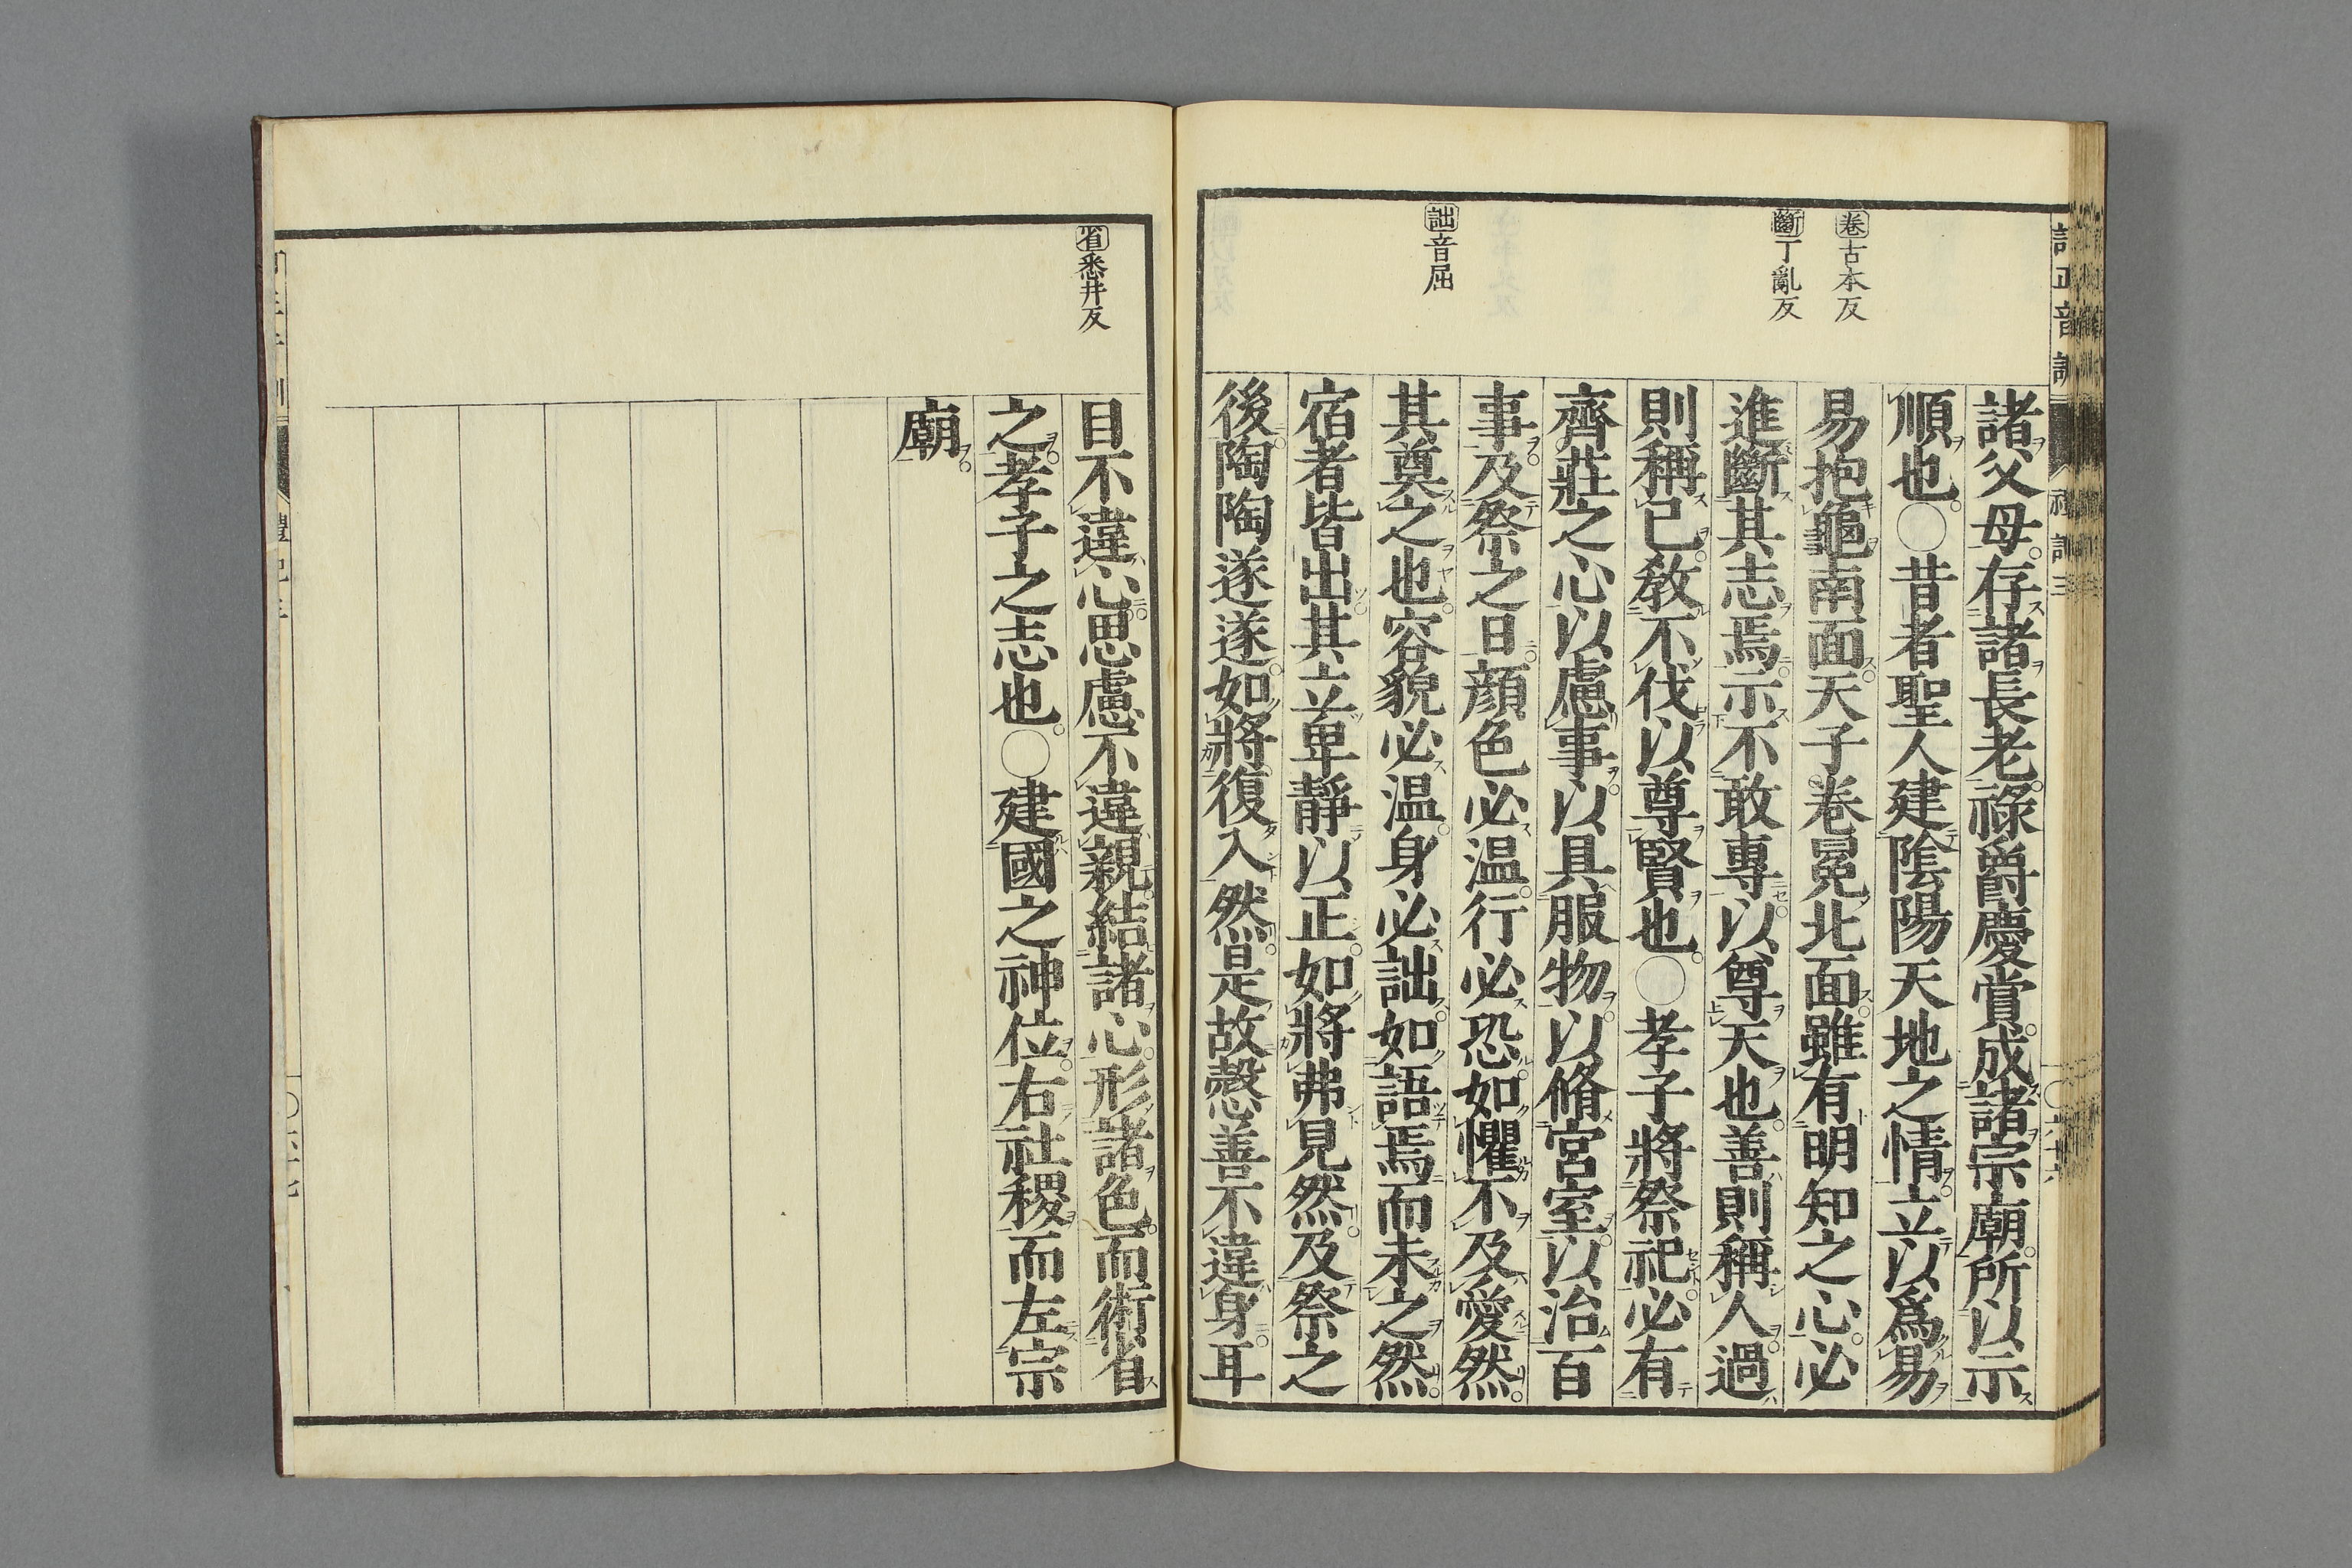 卷古本反
斷丁亂反
詘音屈
諸父母存諸長老祿爵慶賞成諸宗廟所以示
順也○昔者聖人建陰陽天地之情立以爲易
易抱龜南面天子卷冕北面雖有明知之心必
進斷其志焉示不敢專以尊天也善則稱人過
則稱己敎不伐以尊賢也○孝子將祭祀必有
齊莊之心以慮事以具服物以脩宮室以治百
事及祭之日顔色必温行必恐如懼不及愛然
其奠之也容貌必温身必詘如語焉而未之然
宿者皆出其立卑靜以正如將弗見然及祭之
後陶陶遂遂如將復入然是故慤善不違身耳
省悉井反
目不違心思慮不違親結諸心形諸色而術省
之孝子之志也○建國之神位右社稷而左宗
廟